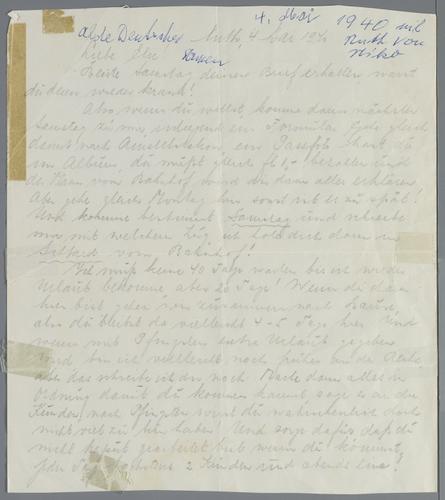 4. Mai 1940 mit
Ruth von
Niko
als Deutscher
Nuth, 4 Mai 1940
Liebe Else
Heute Samstag deinen Brief erhalten warst
du denn wieder krank!
Also, wenn du willst, komme dann nächsten
Samstag zu uns, ein Formular
dienst nach Amstelveen, ein Passfoto hast du
im Album du müßt gleich fl 1,- bezahlen und
der Mann vom Bahnhof wird dir dann alles erklären
Aber gehe gleich Montag hin sonst wird es zu spät!
Und komme bestimmt Samstag und schreibe
mir mit welchem Zug ich hole dich dann in
Sittard vom Bahnhof!
Ich muß keine 40 Tage warten bis ich wieder
Urlaub bekomme aber 20 Tage! Wenn du dann
hier bist gehen wir zusammen nach Hause,
also du bleibst da vielleicht 4-5 Tage hier und
wenn mit Pfingsten extra Urlaub gegeben
wird bin ich vielleicht noch früher an der Reihe
aber das schreibe ich dir noch. Mache dann alles in
Ordnung damit du kommen kannst, sage es an die
Kinder, nach Pfingsten wirst du wahrscheinlich doch
nicht viel zu tun haben! Und sorge dafür daß du
nicht kaput gearbeitet bist wenn du kommst,
jeden 2 Kunden und abends eine!